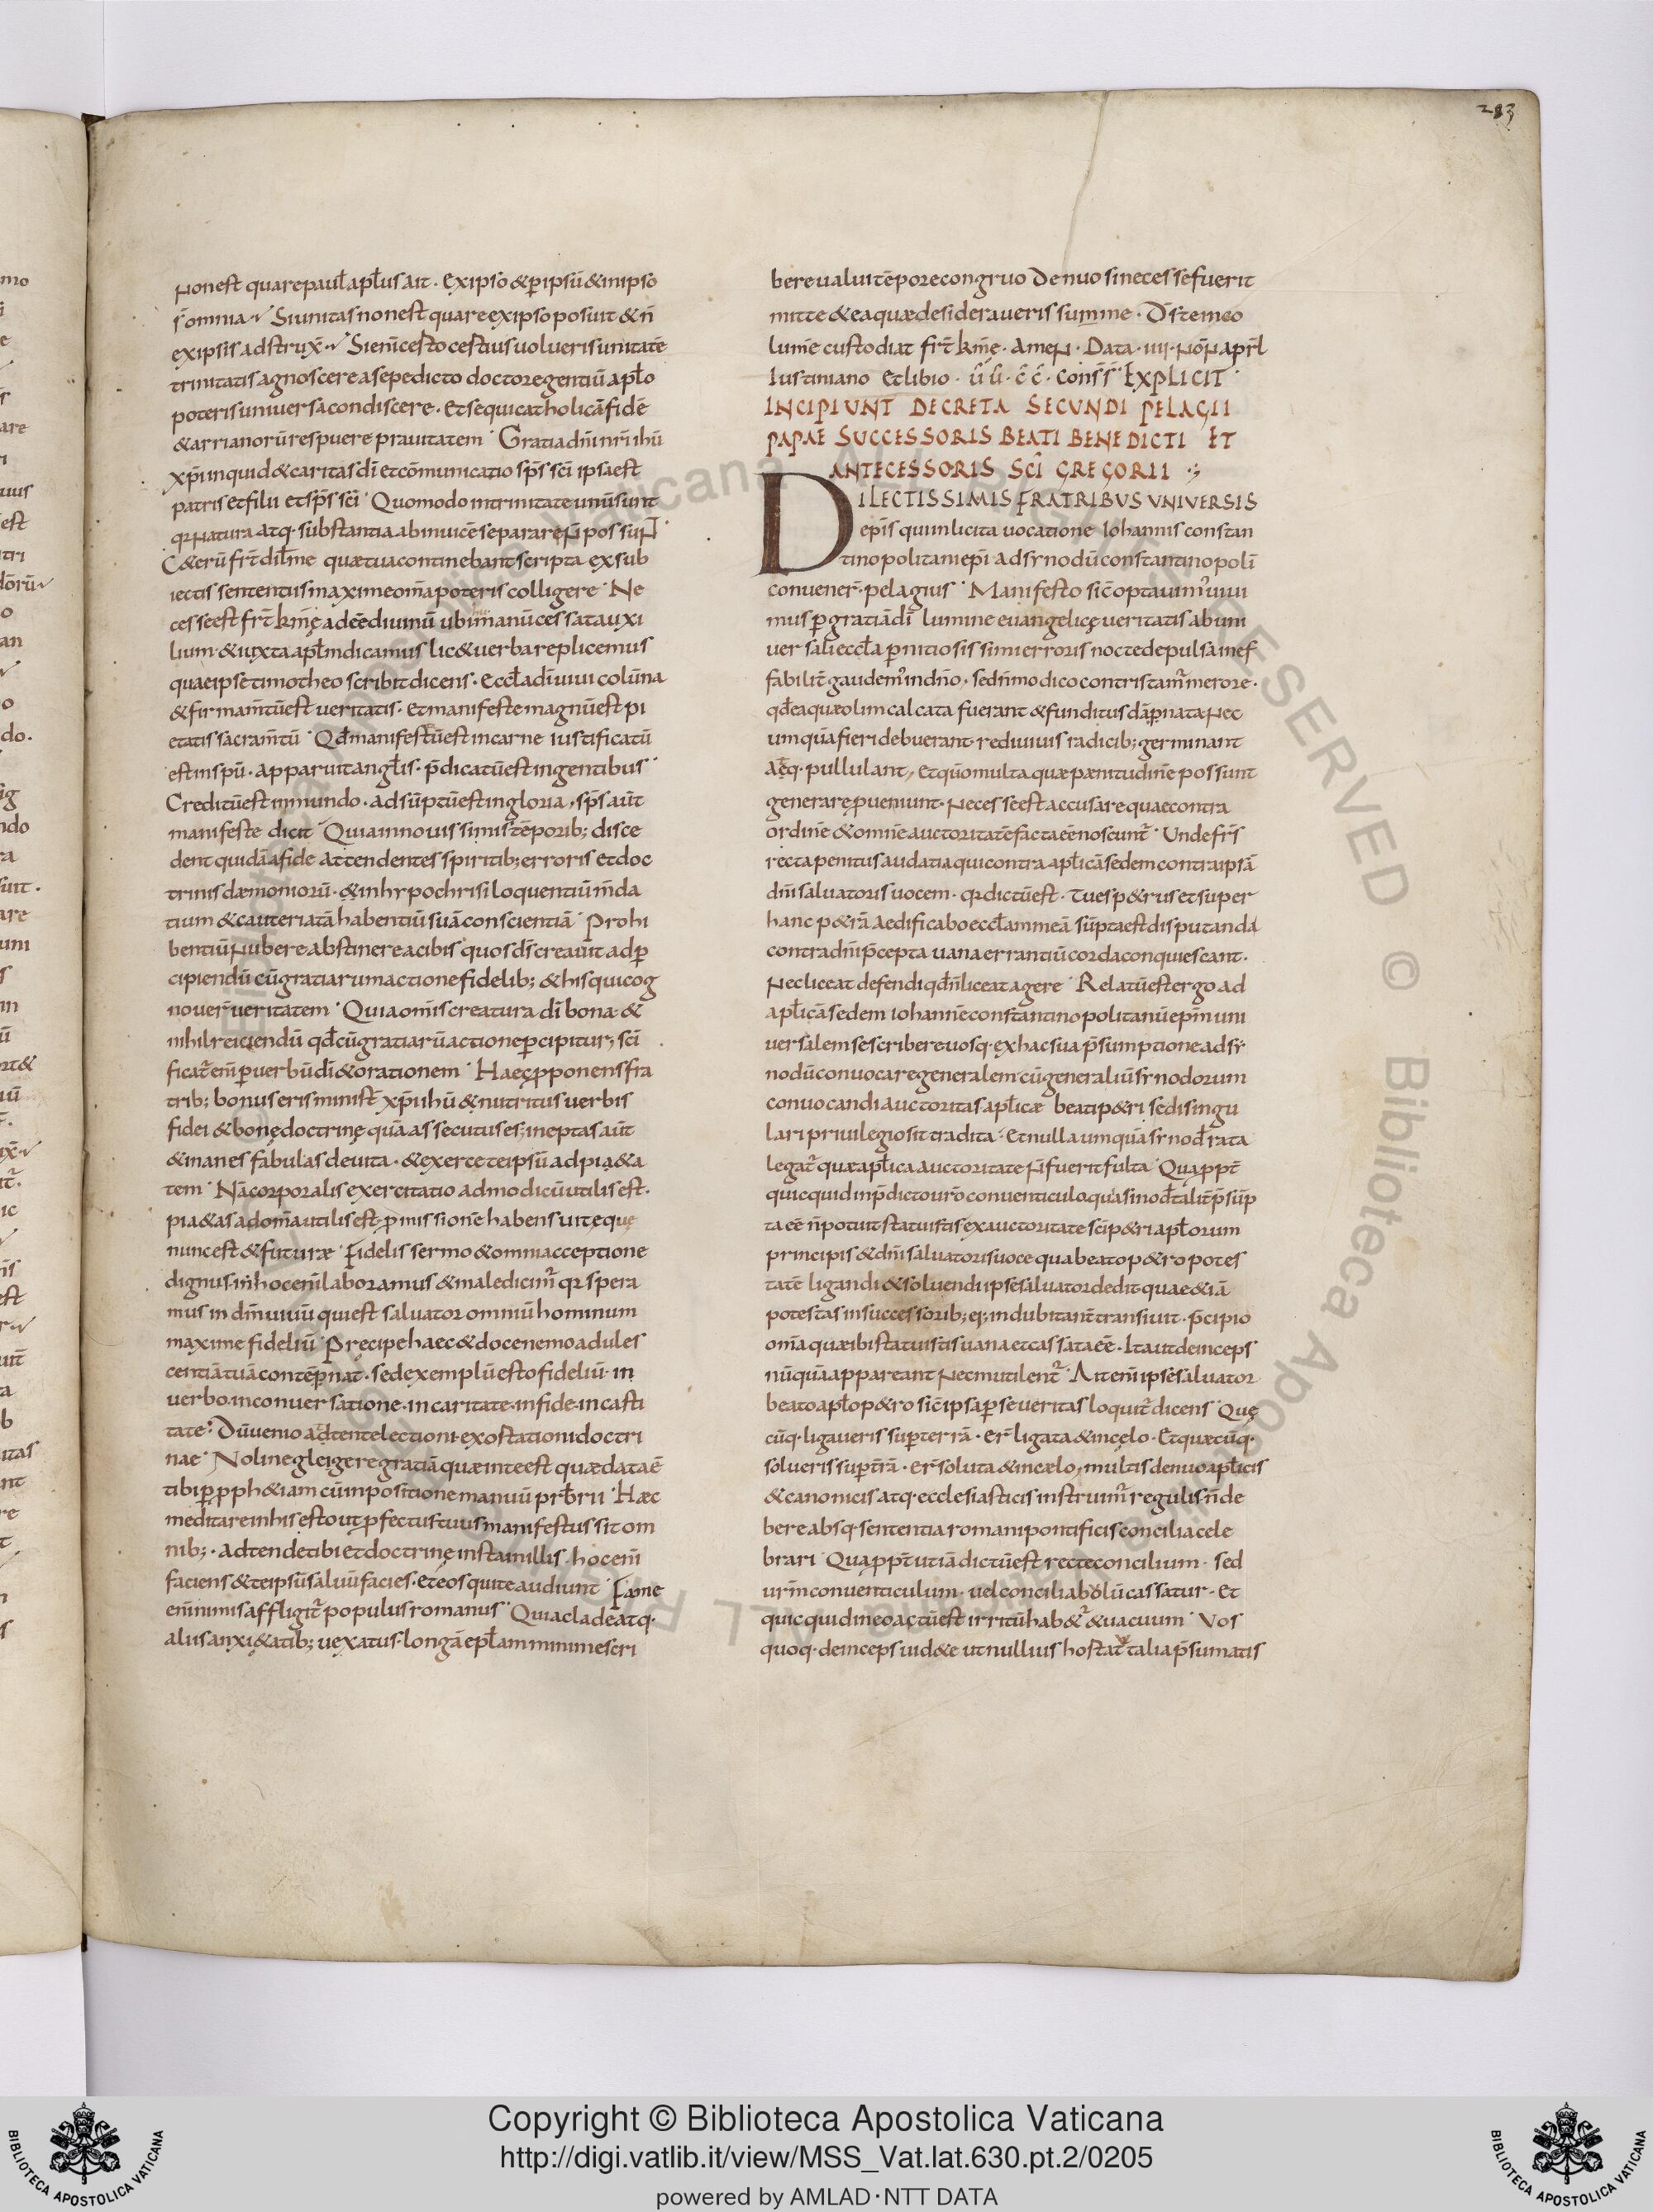 283
Non est quare paul̄ apl̄us ait · Ex ipso & p̄ ipsū & in ipso
s̄ omnia Si unitas non est quare ex ipso posuit & n̄
ex ipsis adstrux̄ Si enī c̄esto cestius uolueris unitatē
trinitatis agnoscere a sepedicto doctore gentiū apl̄o
poteris uniuersa condiscere · et sequi catholicā fidē
& arrianorū respuere prauitatem · Gratia dn̄i nr̄i ihū
xp̄i inquid & caritas dī et cōmunicatio sp̄s sc̄i ipsa est
patris et filii et sp̄s sc̄i · Quomodo in trinitate unū sunt
qr natura atq· substantia ab inuicē separare N̄ possunt ·
C&erū fr̄t dil̄me quæ tua continebant scripta ex sub
iectis sententiis maxime om̄a poteris colligere · Ne
cesse est fr̄t km̄ę ad eē diuinū ubi manū cessat auxi
lium · & iuxta apl̄m dicamus lic& uerba replicemus
quae ipse timotheo scribit dicens · Eccl̄a dī uiui colūna
& firmam̄tū est ueritatis · et manifeste magnū est pi
etatis sacram̄tū · Qd̄ manifestū est in carne iustificatū
est in sp̄u · apparuit angl̄is · p̄dicatū est in gentibus ·
Creditū est in mundo · adsūptū est in gloria · sp̄s aūt
manifeste dicit · Quia in nouissimis tēporib; disce
dent quidā a fide attendentes spiritib; erroris et doc
trinis dæmoniorū · & in hypochrisi loquentiū m̄da
tium & cauteriatā habentiū suā conscientiā · Prohi
bentiū nubere abstinere a cibis quos dī creauit ad p̄
cipiendū cū gratiarum actione fidelib; & his qui cog
nouer̄ ueritatem · Quia omīs creatura dī bona &
nihil reiciendū qd̄ cū gratiarū actione p̄cipitur; sc̄i
ficat̄ em̄ p̄ uerbū dī & orationem · Haec p̄ponens fra
trib; bonus eris minist̄ xp̄i ihū & nutritus uerbis
fidei & bonę doctrinę quā assecutus es; ineptas aūt
& inanes fabulas deuita · & exerce te ipsū ad pi&a
tem · Nā corporalis exercitatio ad modicū utilis est ·
pi&as ad om̄a utilis est p̄missionē habens uitę quę
nunc est & futuræ · Fidelis sermo & omni acceptione
dignus · in hoc enī laboramus & maledicim̄ qr spera
mus in dm̄ uiuū qui est saluator omniū hominum
maxime fideliū · Precipe haec & doce nemo adules
centiā tuā contēp̄nat · sed exemplū esto fideliū · in
uerbo · in conuersatione · in caritate · in fide · in casti
tate · Dū uenio adtente lectioni · exostationi doctri
nae · Noli neglegere gratiā quæ in te est quæ data ē
tibi p̄ p̄ph&iam cū inpositione manuū prb̄rii · Hæc
meditare in his esto ut p̄fectus tuus manifestus sit om
nib; · adtende tibi et doctrinę insta in illis · hoc enī
faciens & te ipsū saluū facies · et eos qui te audiunt · Fame
enī nimis affligit̄ populus romanus · Quia clade atq·
aliis anxi&atib; uexatus · longā epl̄am minime scri
bere ualui tēpore congruo Denuo si necesse fuerit
mitte & ea quæ desideraueris summe · D̄s te meo
lumē custodiat fr̄t km̄ę · amen · Data · iiij · Nōn aprl̄
Iustiniano et libio · ū ū · c̄ c̄ · conss̄ Explicit ·
INCIPIUNT DECRETA SECUNDI PELAGII
PAPAE SUCCESSORIS BEATI BENEDICTI ET
ANTECESSORIS SC̄I GREGORII
DILECTISSIMIS FRATRIBUS UNIVERSIS
epīs qui inlicita uocatione Iohannis constan
tinopolitani epī ad synodū constantinopolī
conuener̄ · pelagius · Manifesto sic̄ optauim̄ uiui
mus p̄ gratiā dī lumine euangelicę ueritatis ab uni
uersali eccl̄a p̄nitiosissimi erroris nocte depulsa inef
fabilit̄ gaudem̄ in dn̄o · sed n̄ modico contristam̄ merore ·
qd̄ ea quæ olim calcata fuerant & funditus dāp̄nata nec
umquā fieri debuerant rediuiuis radicib; germinant
atq· pullulant, et quō multa quæ pænitudinē possunt
generare p̄ueniunt · Necesse est accusare quae contra
ordinē & omnē auctoritatē facta eē noscunt̄ · Unde frīs
recta penitus audatia qui contra apl̄icā sedem contra ipsā
dn̄i saluatoris uocem · qr dictū est · tu es p&rus et super
hanc p&rā aedificabo eccl̄am meā sūpta est disputanda
contra dn̄i p̄cepta uana errantiū corda conquiescant ·
Nec liceat defendi qd̄ n̄ liceat agere · Relatū est ergo ad
apl̄icā sedem iohannē constantinopolitanū epm̄ uni
uersalem se scribere uosq· ex hac sua p̄sumptione ad sy
nodū conuocare generalem · cū generaliū synodorum
conuocandi auctoritas apl̄icæ beati p&ri sedi singu
lari priuilegio sit tradita · Et nulla umquā synod̄ rata
legat̄ quæ apl̄ica auctoritate n̄ fuerit fulta · Quapp̄t
quicquid in p̄dicto ur̄o conuenticulo quasi nod̄ talit̄ p̄sūp
ta eē n̄ potuit statuistis ex auctoritate sc̄i p&ri apl̄orum
principis & dn̄i saluatoris uoce qua beato p&ro potes
tatē ligandi & soluendi ipse saluator dedit quae & iā
potestas in successorib; ei; indubitant̄ transiuit · p̄cipio
om̄a quæ ibi statuistis uana et cassata eē · Ita ut deinceps
nūquā appareant nec mutilent̄ · Ait enī ipse saluator
beato apl̄o p&ro sic̄ ipsa p̄ se ueritas loquit̄ dicens · Quę
cūq· ligaueris sup̄ terrā · er̄ ligata & in cęlo · Et quæcūq·
solueris sup̄ t̄rā · er̄ soluta & in cælo, multis denuo apl̄icis
& canonicis atq· ecclesiasticis instruim̄ regulis · n̄ de
bere absq· sententia romani pontificis concilia cele
brari · Quapp̄t ut iā dictū est recte concilium · sed
urm̄ conuenticulum · uel conciliabolū cassatur · et
quicquid in eo actū est irritū hab&̄ & uacuum · Vos
quoq· deinceps uid&e ut nullius hostat̄ talia p̄sumatis
Copyright © Biblioteca Apostolica Vaticana
http://digi.vatlib.it/view/MSS_Vat.lat.630.pt.2/0205
powered by AMLAD·NTT DATA
BIBLIOTECA APOSTOLICA VATICANA
BIBLIOTECA APOSTOLICA VATICANA